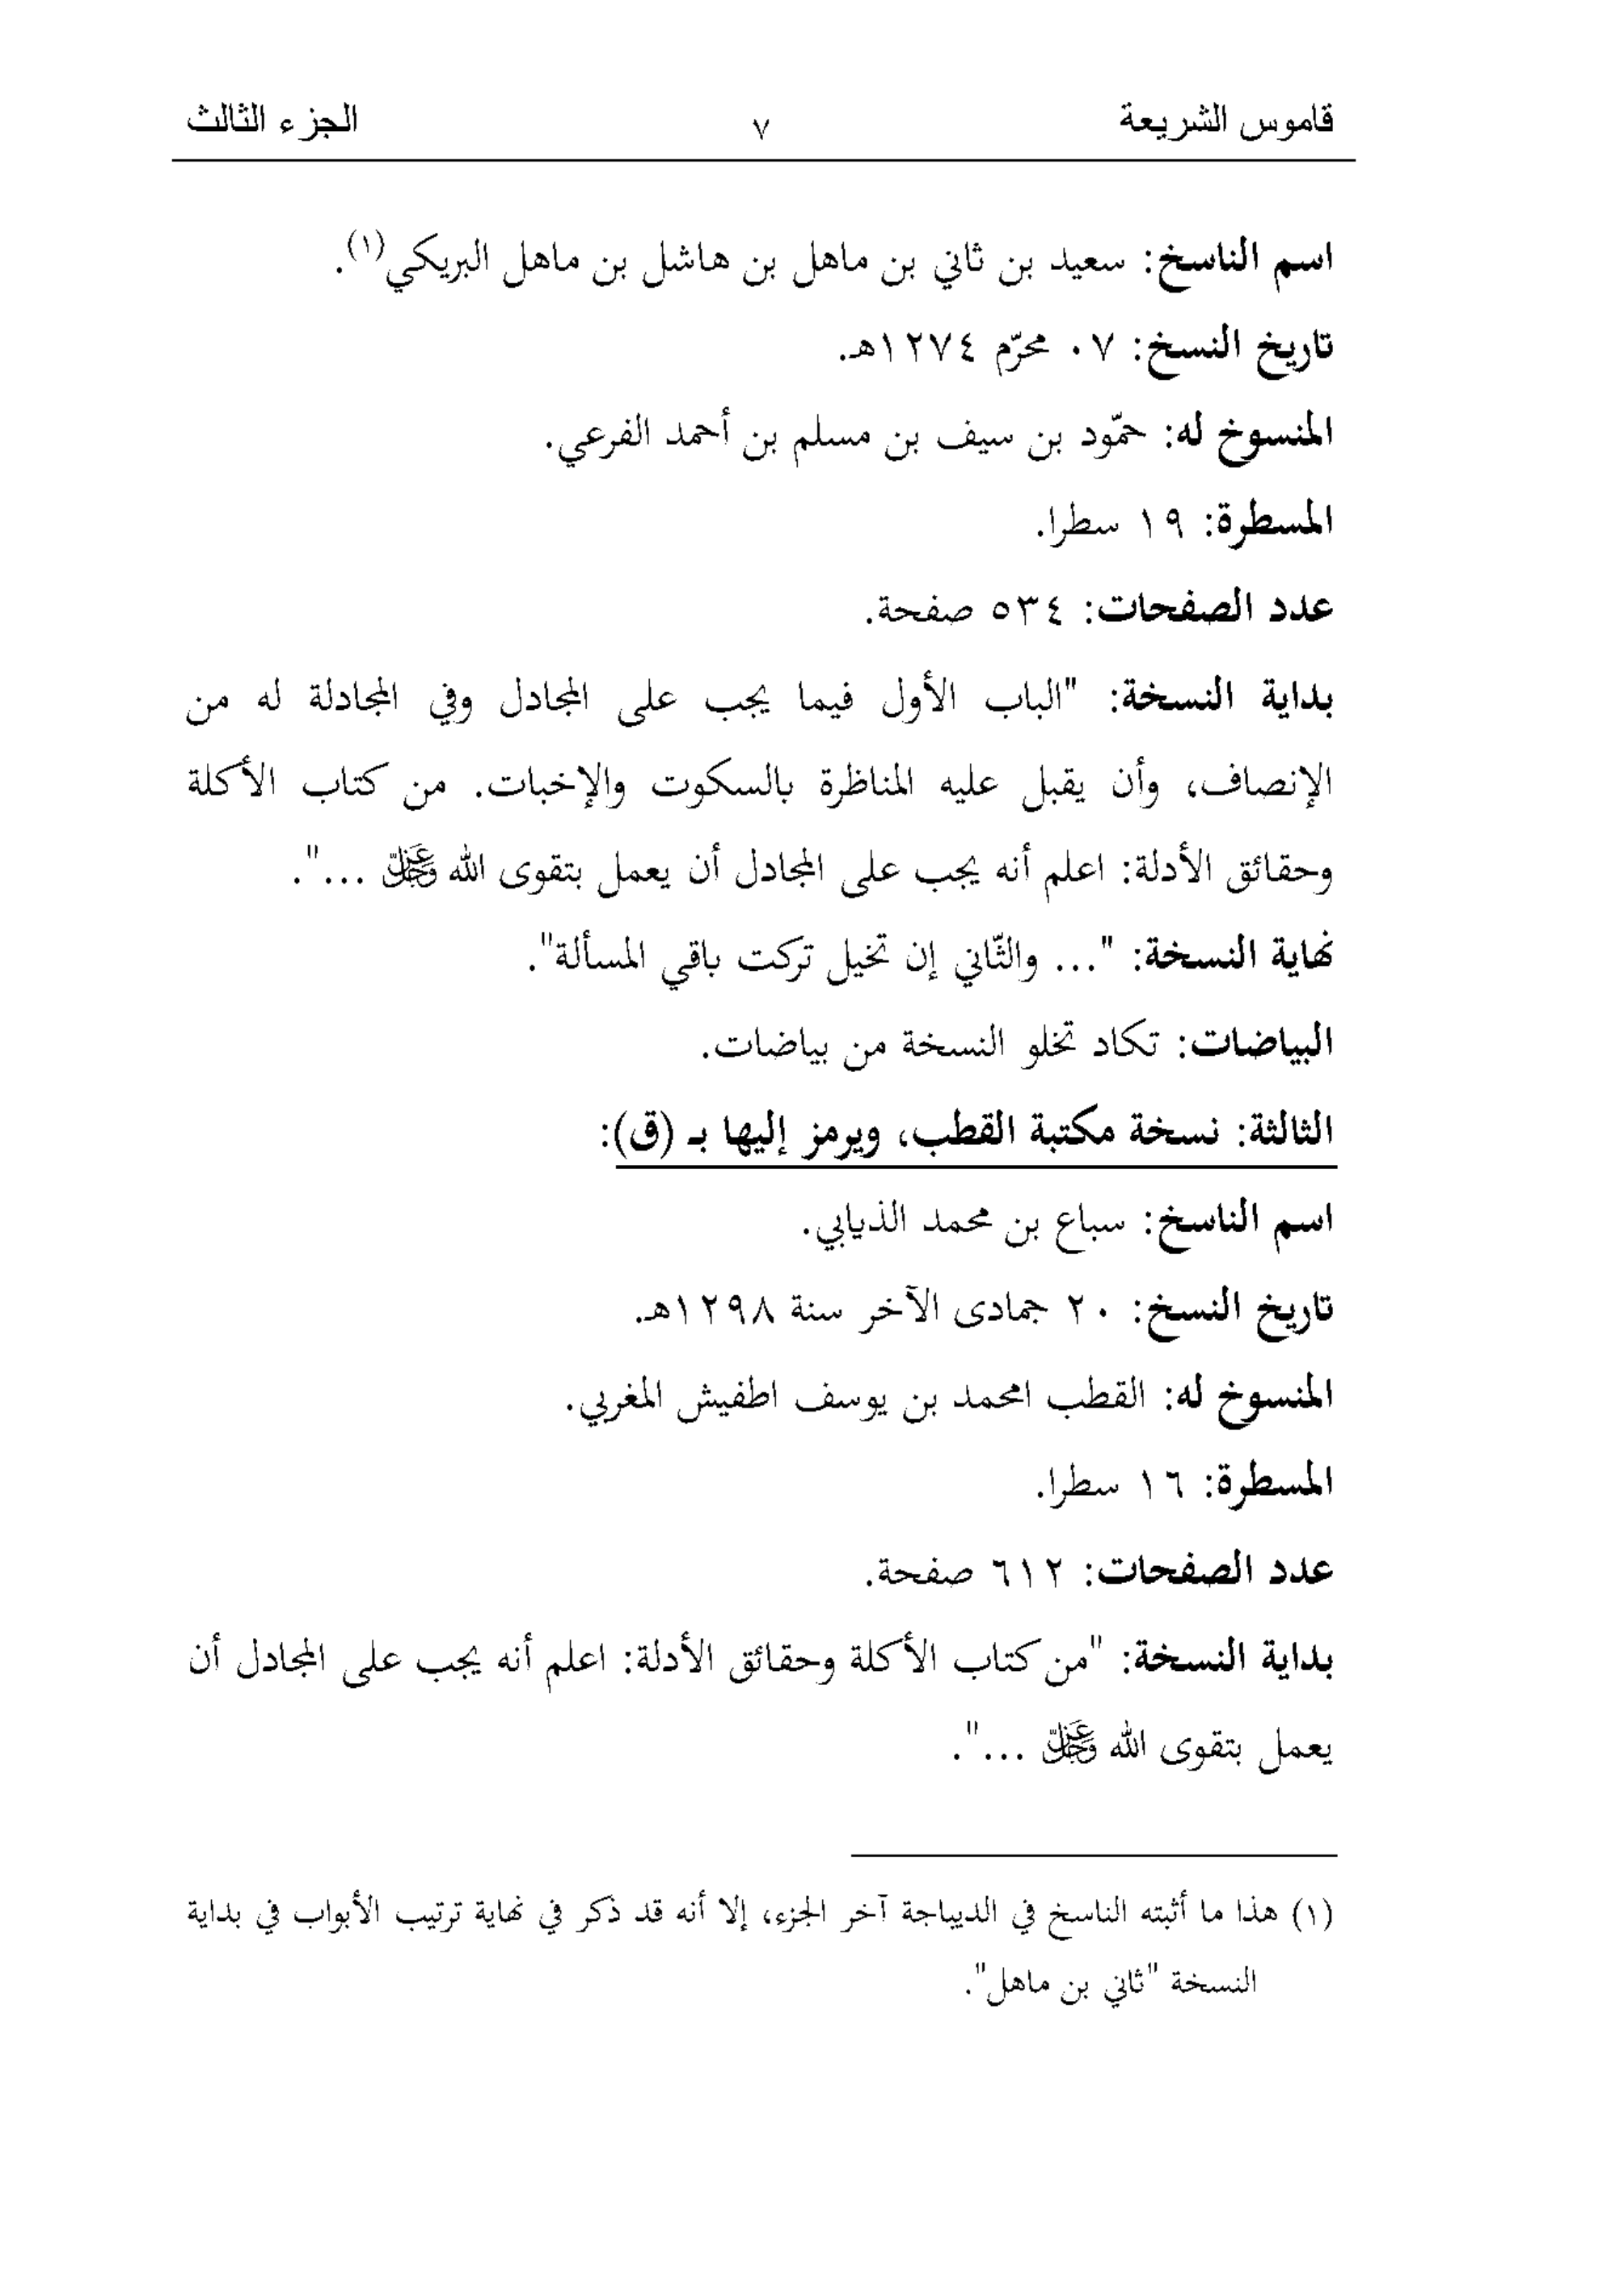 قاموس الشريعة ٧ الجزء الثالث
اسم الناسخ: سعيد بن ثاني بن ماهل بن هاشل بن ماهل البريكي(١).
تاريخ النسخ: ٠٧ محرّم ١٢٧٤هـ.
المنسوخ له: حمّود بن سيف بن مسلم بن أحمد الفرعي.
المسطرة: ١٩ سطرا.
عدد الصفحات: ٥٣٤ صفحة.
بداية النسخة: "الباب الأول فيما يجب على المجادل وفي المجادلة له من
الإنصاف، وأن يقبل عليه المناظرة بالسكوت والإخبات. من كتاب الأكلة
وحقائق الأدلة: اعلم أنه يجب على المجادل أن يعمل بتقوى الله عَزَّ وَجَلَّ ...".
نهاية النسخة: "... والثّاني إن تخيل تركت باقي المسألة".
البياضات: تكاد تخلو النسخة من بياضات.
الثالثة: نسخة مكتبة القطب، ويرمز إليها بـ (ق):
اسم الناسخ: سباع بن محمد الذيابي.
تاريخ النسخ: ٢٠ جمادى الآخر سنة ١٢٩٨هـ.
المنسوخ له: القطب امحمد بن يوسف اطفيش المغربي.
المسطرة: ١٦ سطرا.
عدد الصفحات: ٦١٢ صفحة.
بداية النسخة: "من كتاب الأكلة وحقائق الأدلة: اعلم أنه يجب على المجادل أن
يعمل بتقوى الله عَزَّ وَجَلَّ ...".
(١) هذا ما أثبته الناسخ في الديباجة آخر الجزء، إلا أنه قد ذكر في نهاية ترتيب الأبواب في بداية
النسخة "ثاني بن ماهل".